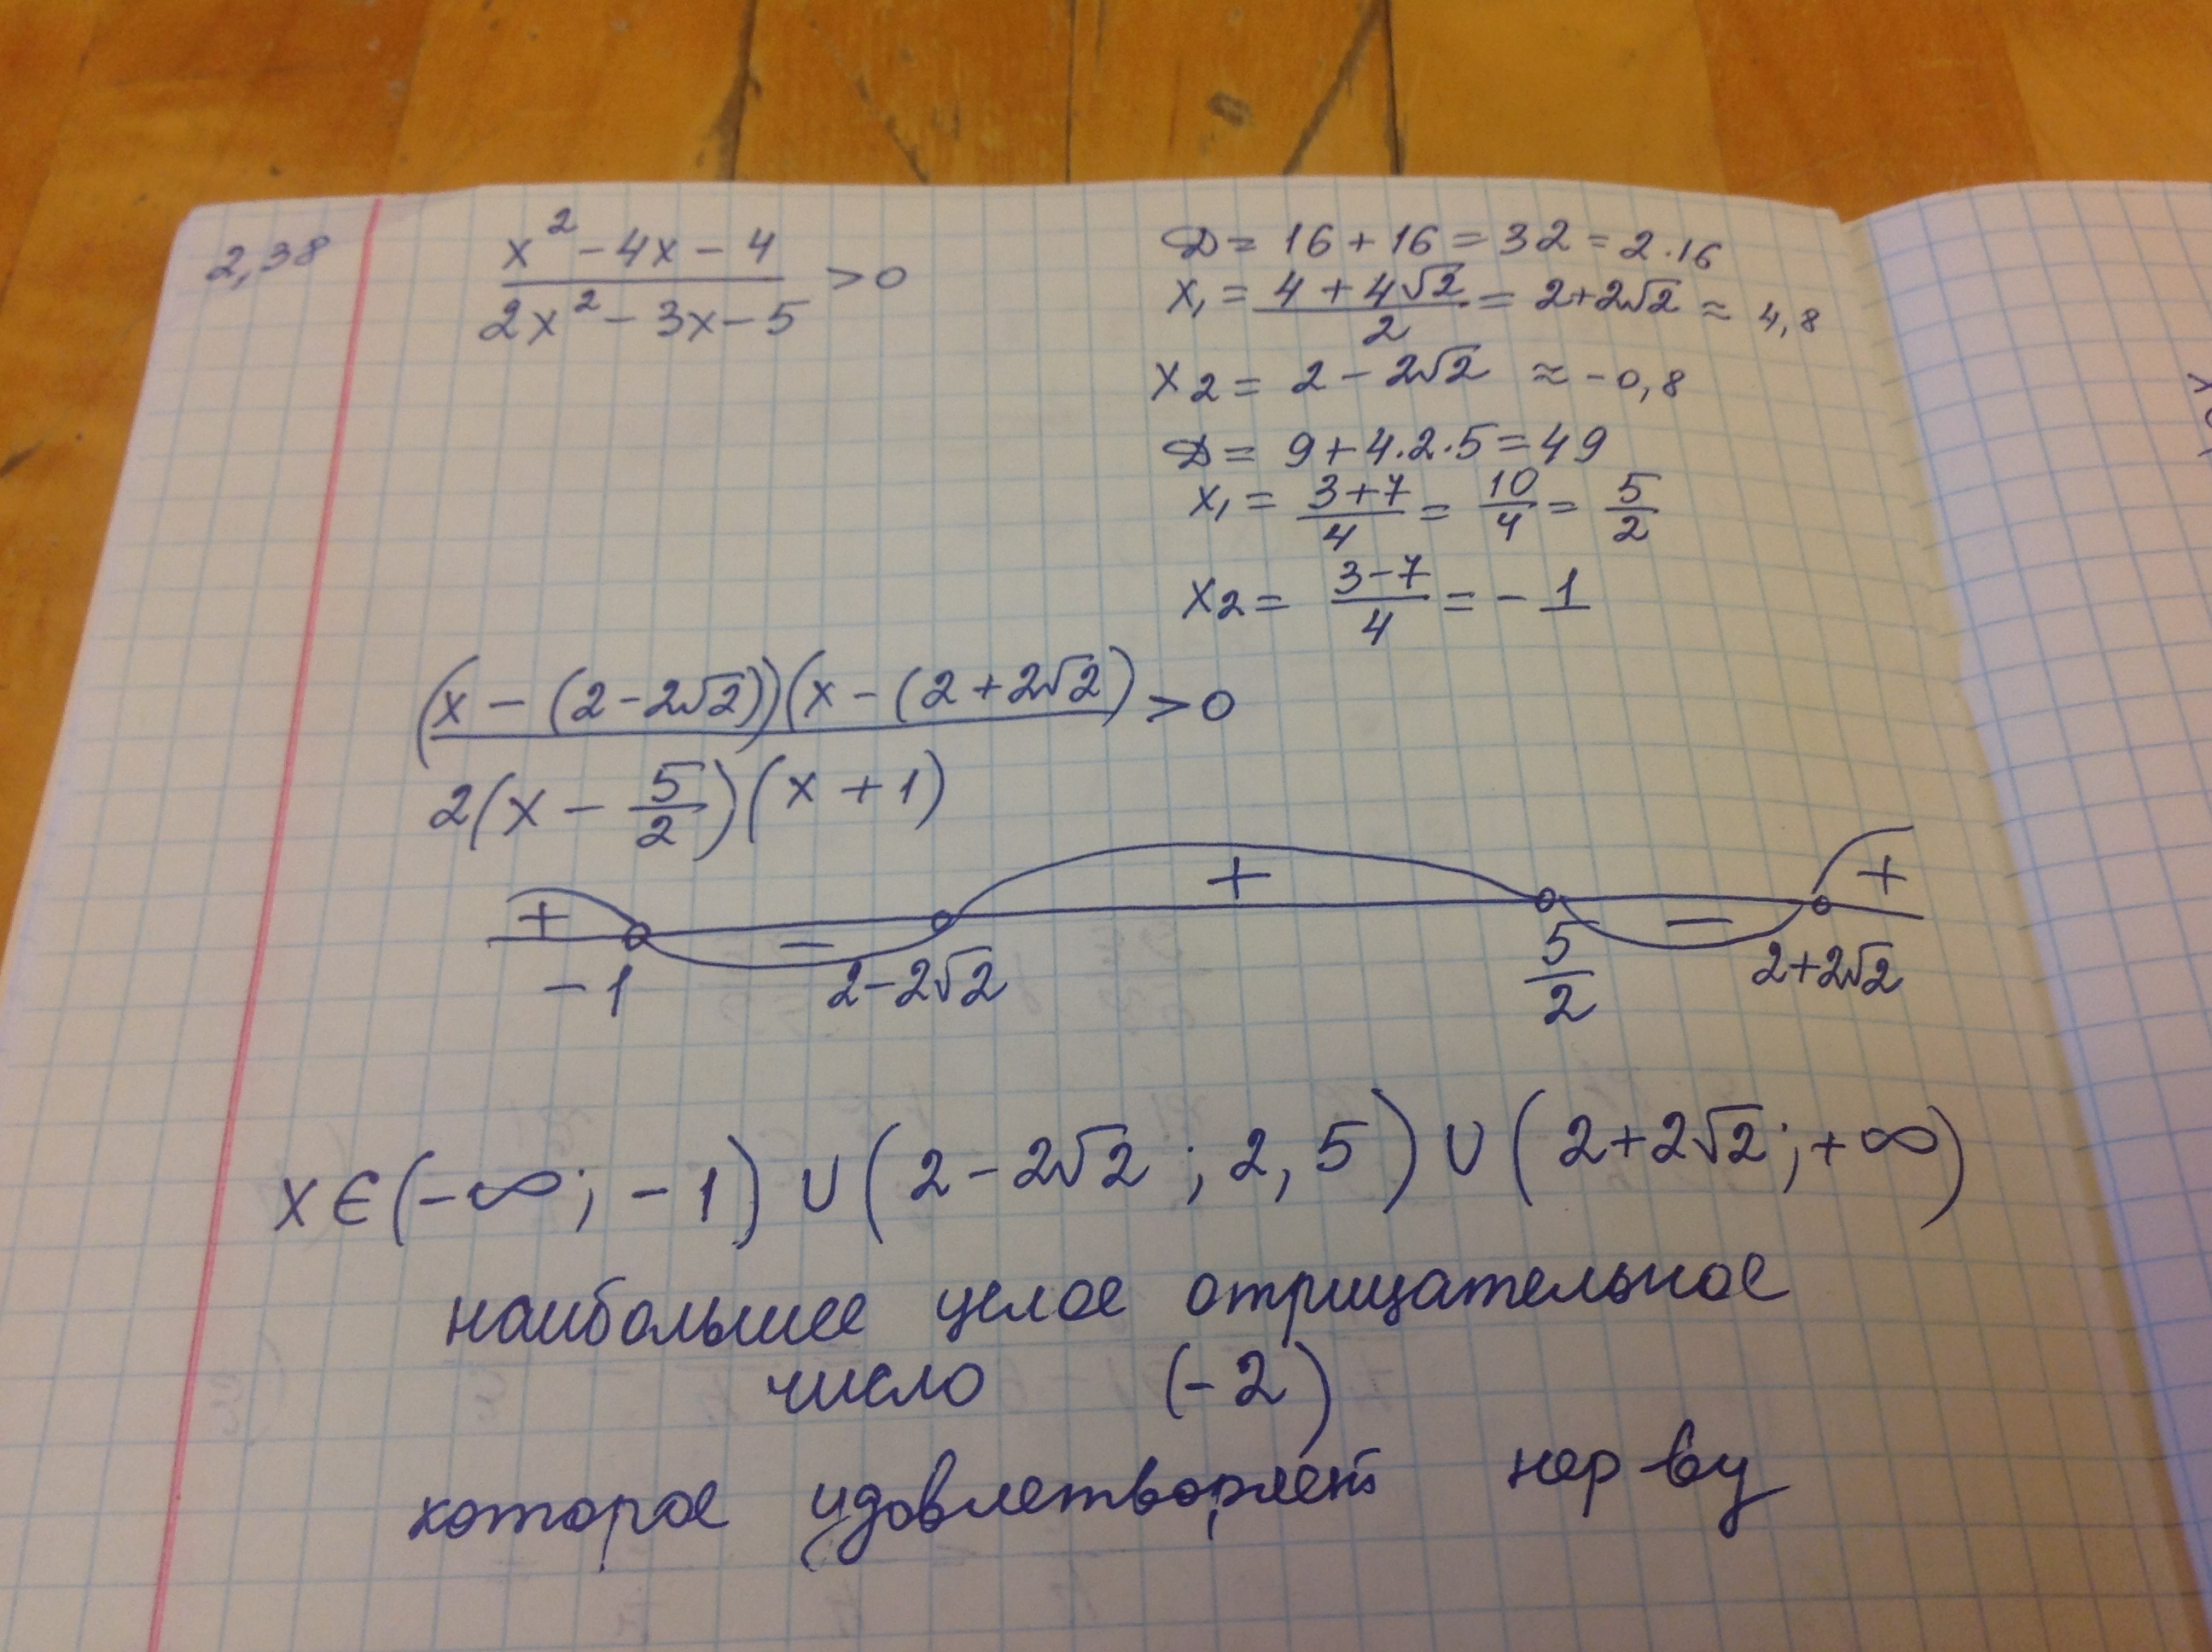 2,38
x² - 4x - 4
2x² - 3x - 5 > 0
D = 16 + 16 = 32 = 2·16
x₁ = (4 + 4√2)/2 = 2+2√2 ≈ 4,8
x₂ = 2 - 2√2 ≈ -0,8
D = 9 + 4·2·5 = 49
x₁ = (3+7)/4 = 10/4 = 5/2
x₂ = (3-7)/4 = - 1
(x - (2-2√2))(x - (2+2√2) > 0
2(x - 5/2)(x + 1)
+ - + - +
-1 2-2√2 5/2 2+2√2
x ∈ (-∞; -1) ∪ (2-2√2 ; 2,5) ∪ (2+2√2; +∞)
наибольшее целое отрицательное
число (-2)
которое удовлетворяет нер-ву